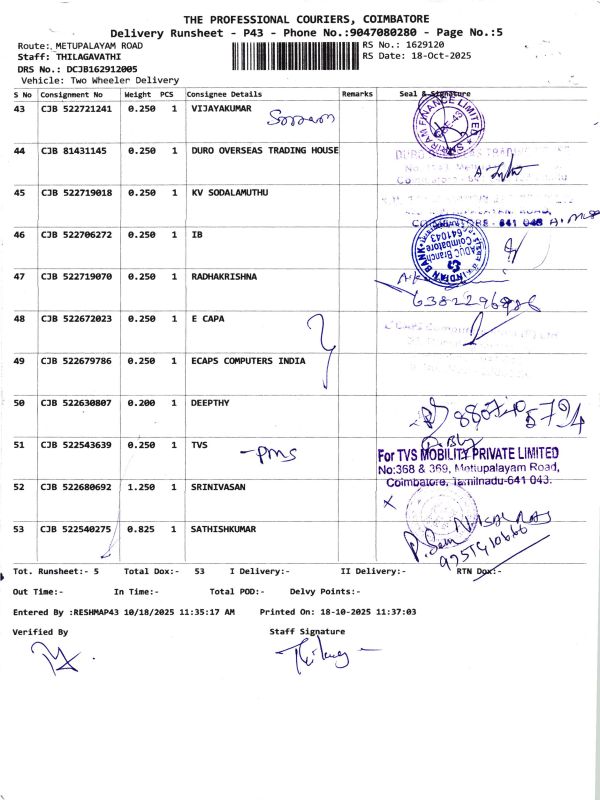 THE PROFESSIONAL COURIERS, COIMBATORE
Delivery Runsheet - P43 - Phone No.:9047080280 - Page No.:5
Route: METUPALAYAM ROAD
RS No.: 1629120
Staff: THILAGAVATHI
RS Date: 18-Oct-2025
DRS No.: DCJB162912005
Vehicle: Two Wheeler Delivery
S No Consignment No Weight PCS Consignee Details Remarks Seal & Signature
43 CJB 522721241 0.250 1 VIJAYAKUMAR
SRIRAM FINANCE LIMITED
44 CJB 81431145 0.250 1 DURO OVERSEAS TRADING HOUSE
45 CJB 522719018 0.250 1 KV SODALAMUTHU
641 043
46 CJB 522706272 0.250 1 IB
INDIAN BANK
Coimbatore
641043
47 CJB 522719070 0.250 1 RADHAKRISHNA
48 CJB 522672023 0.250 1 E CAPA
49 CJB 522679786 0.250 1 ECAPS COMPUTERS INDIA
50 CJB 522630807 0.200 1 DEEPTHY
51 CJB 522543639 0.250 1 TVS
-PMS
For TVS MOBILITY PRIVATE LIMITED
No:368 & 369, Mettupalayam Road,
Coimbatore, Tamilnadu-641 043.
52 CJB 522680692 1.250 1 SRINIVASAN
53 CJB 522540275 0.825 1 SATHISHKUMAR
Tot. Runsheet:- 5 Total Dox:- 53 I Delivery:- II Delivery:- RTN Dox:-
Out Time:- In Time:- Total POD:- Delvy Points:-
Entered By :RESHMAP43 10/18/2025 11:35:17 AM Printed On: 18-10-2025 11:37:03
Verified By Staff Signature